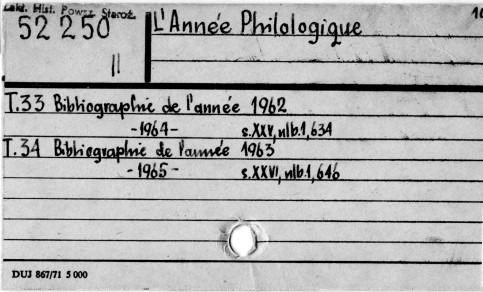 Zakł. Hist. Powsz. Staroż.
52 250
II
L'Année Philologique
10
T.33 Bibliographie de l'année 1962
-1964- s.XXV, nlb.1, 634
T.34 Bibliographie de l'année 1963
-1965- s.XXVI, nlb.1, 646
DUJ 867/71 5 000